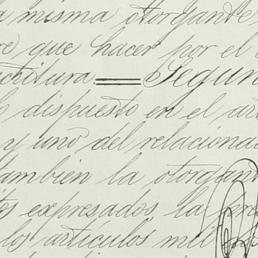 misma otorgante
que hacer por el
critura = Segun
dispuesto en el ar
y uno del relaciona
tambien la otorgan
tos expresados, la
los artículos mil